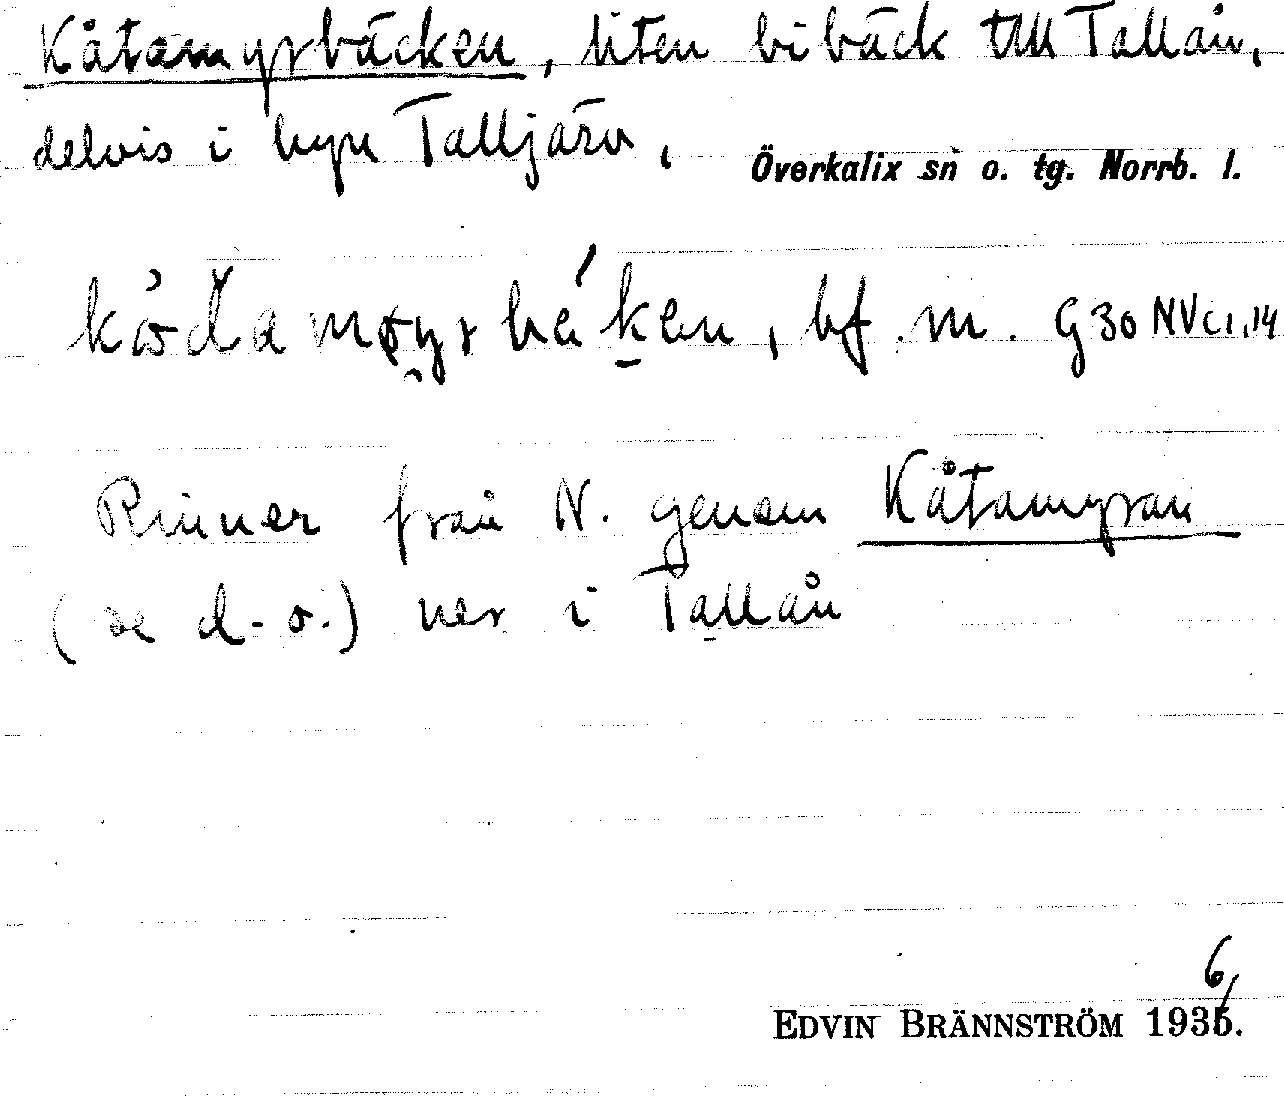 Kåtamyrbäcken, liten bibäck till Tallån,
delvis i byn Talljärv,
Överkalix sn o. tg. Norrb. l.
bf. m. G 30 NV
Rinner från N. genom Kåtamyran
(se d-o.) ner i Tallån
6
EDVIN BRÄNNSTRÖM 1935.